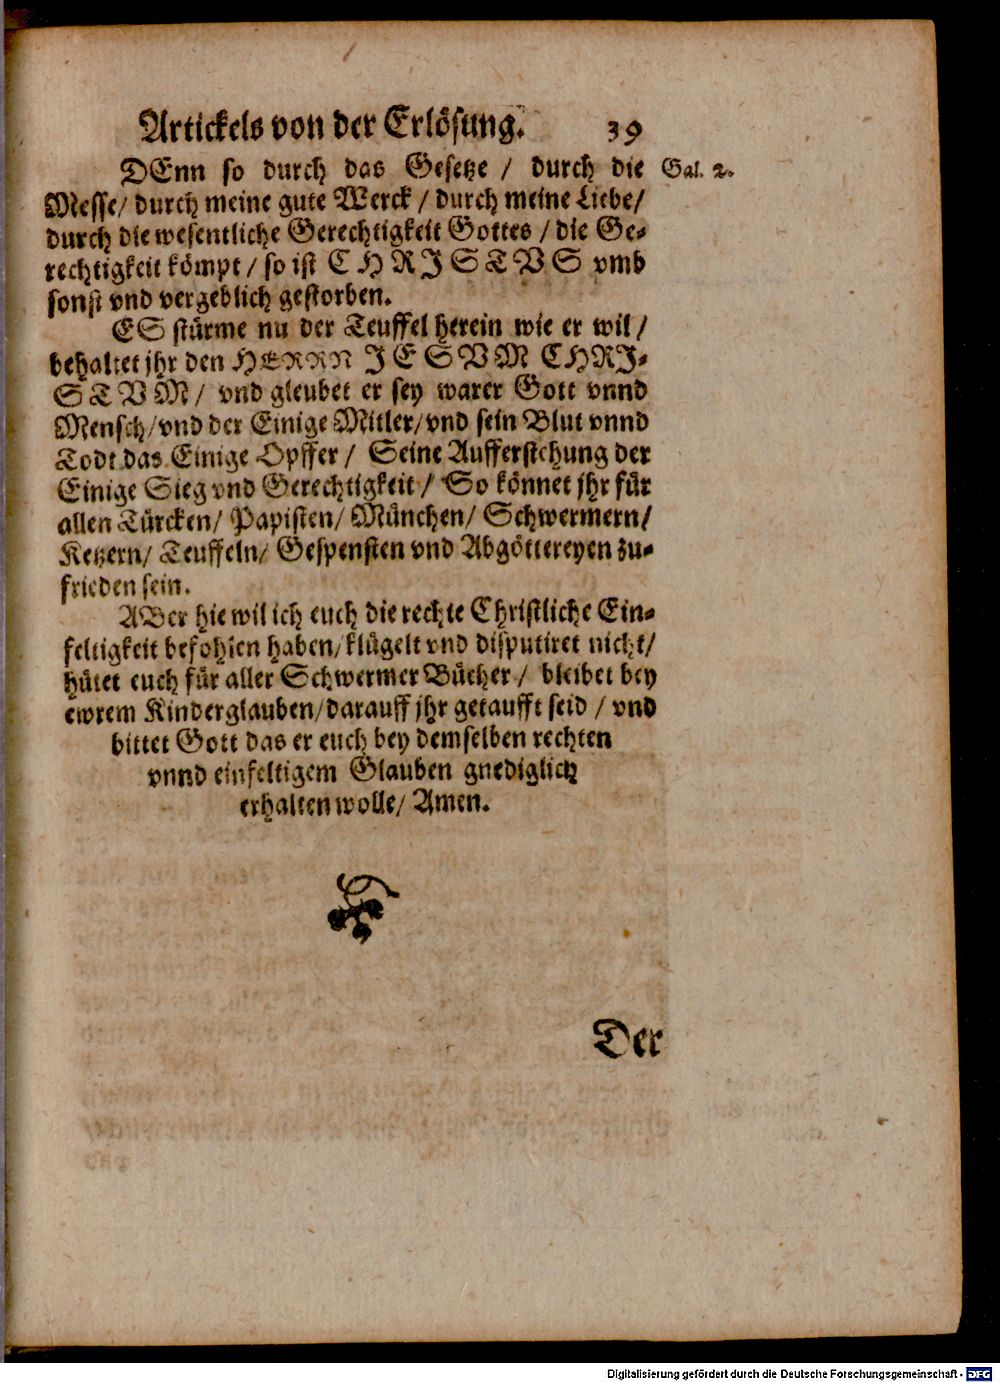 Artickels von der Erlösung. 39
DEnn so durch das Gesetze / durch die Gal. 2.
Messe/ durch meine gute Werck / durch meine Liebe/
durch die wesentliche Gerechtigkeit Gottes / die Ge-
rechtigkeit kömpt / so ist CHRISTVS vmb
sonst vnd vergeblich gestorben.
ES stürme nu der Teuffel herein wie er wil /
behaltet jhr den HERRN JESVM CHRI-
STVM / vnd gleubet er sey warer Gott vnnd
Mensch / vnd der Einige Mitler / vnd sein Blut vnnd
Todt das Einige Opffer / Seine Aufferstehung der
Einige Sieg vnd Gerechtigkeit / So könnet jhr für
allen Türcken / Papisten / München / Schwermern /
Ketzern / Teuffeln / Gespensten vnd Abgöttereyen zu-
frieden sein.
ABer hie wil ich euch die rechte Christliche Ein-
feltigkeit befohlen haben / klügelt vnd disputiret nicht /
hütet euch für aller Schwermer Bücher / bleibet bey
ewrem Kinderglauben / darauff jhr getaufft seid / vnd
bittet Gott das er euch bey demselben rechten
vnnd einfeltigem Glauben gnediglich
erhalten wolle / Amen.
Der
Digitalisierung gefördert durch die Deutsche Forschungsgemeinschaft - DFG